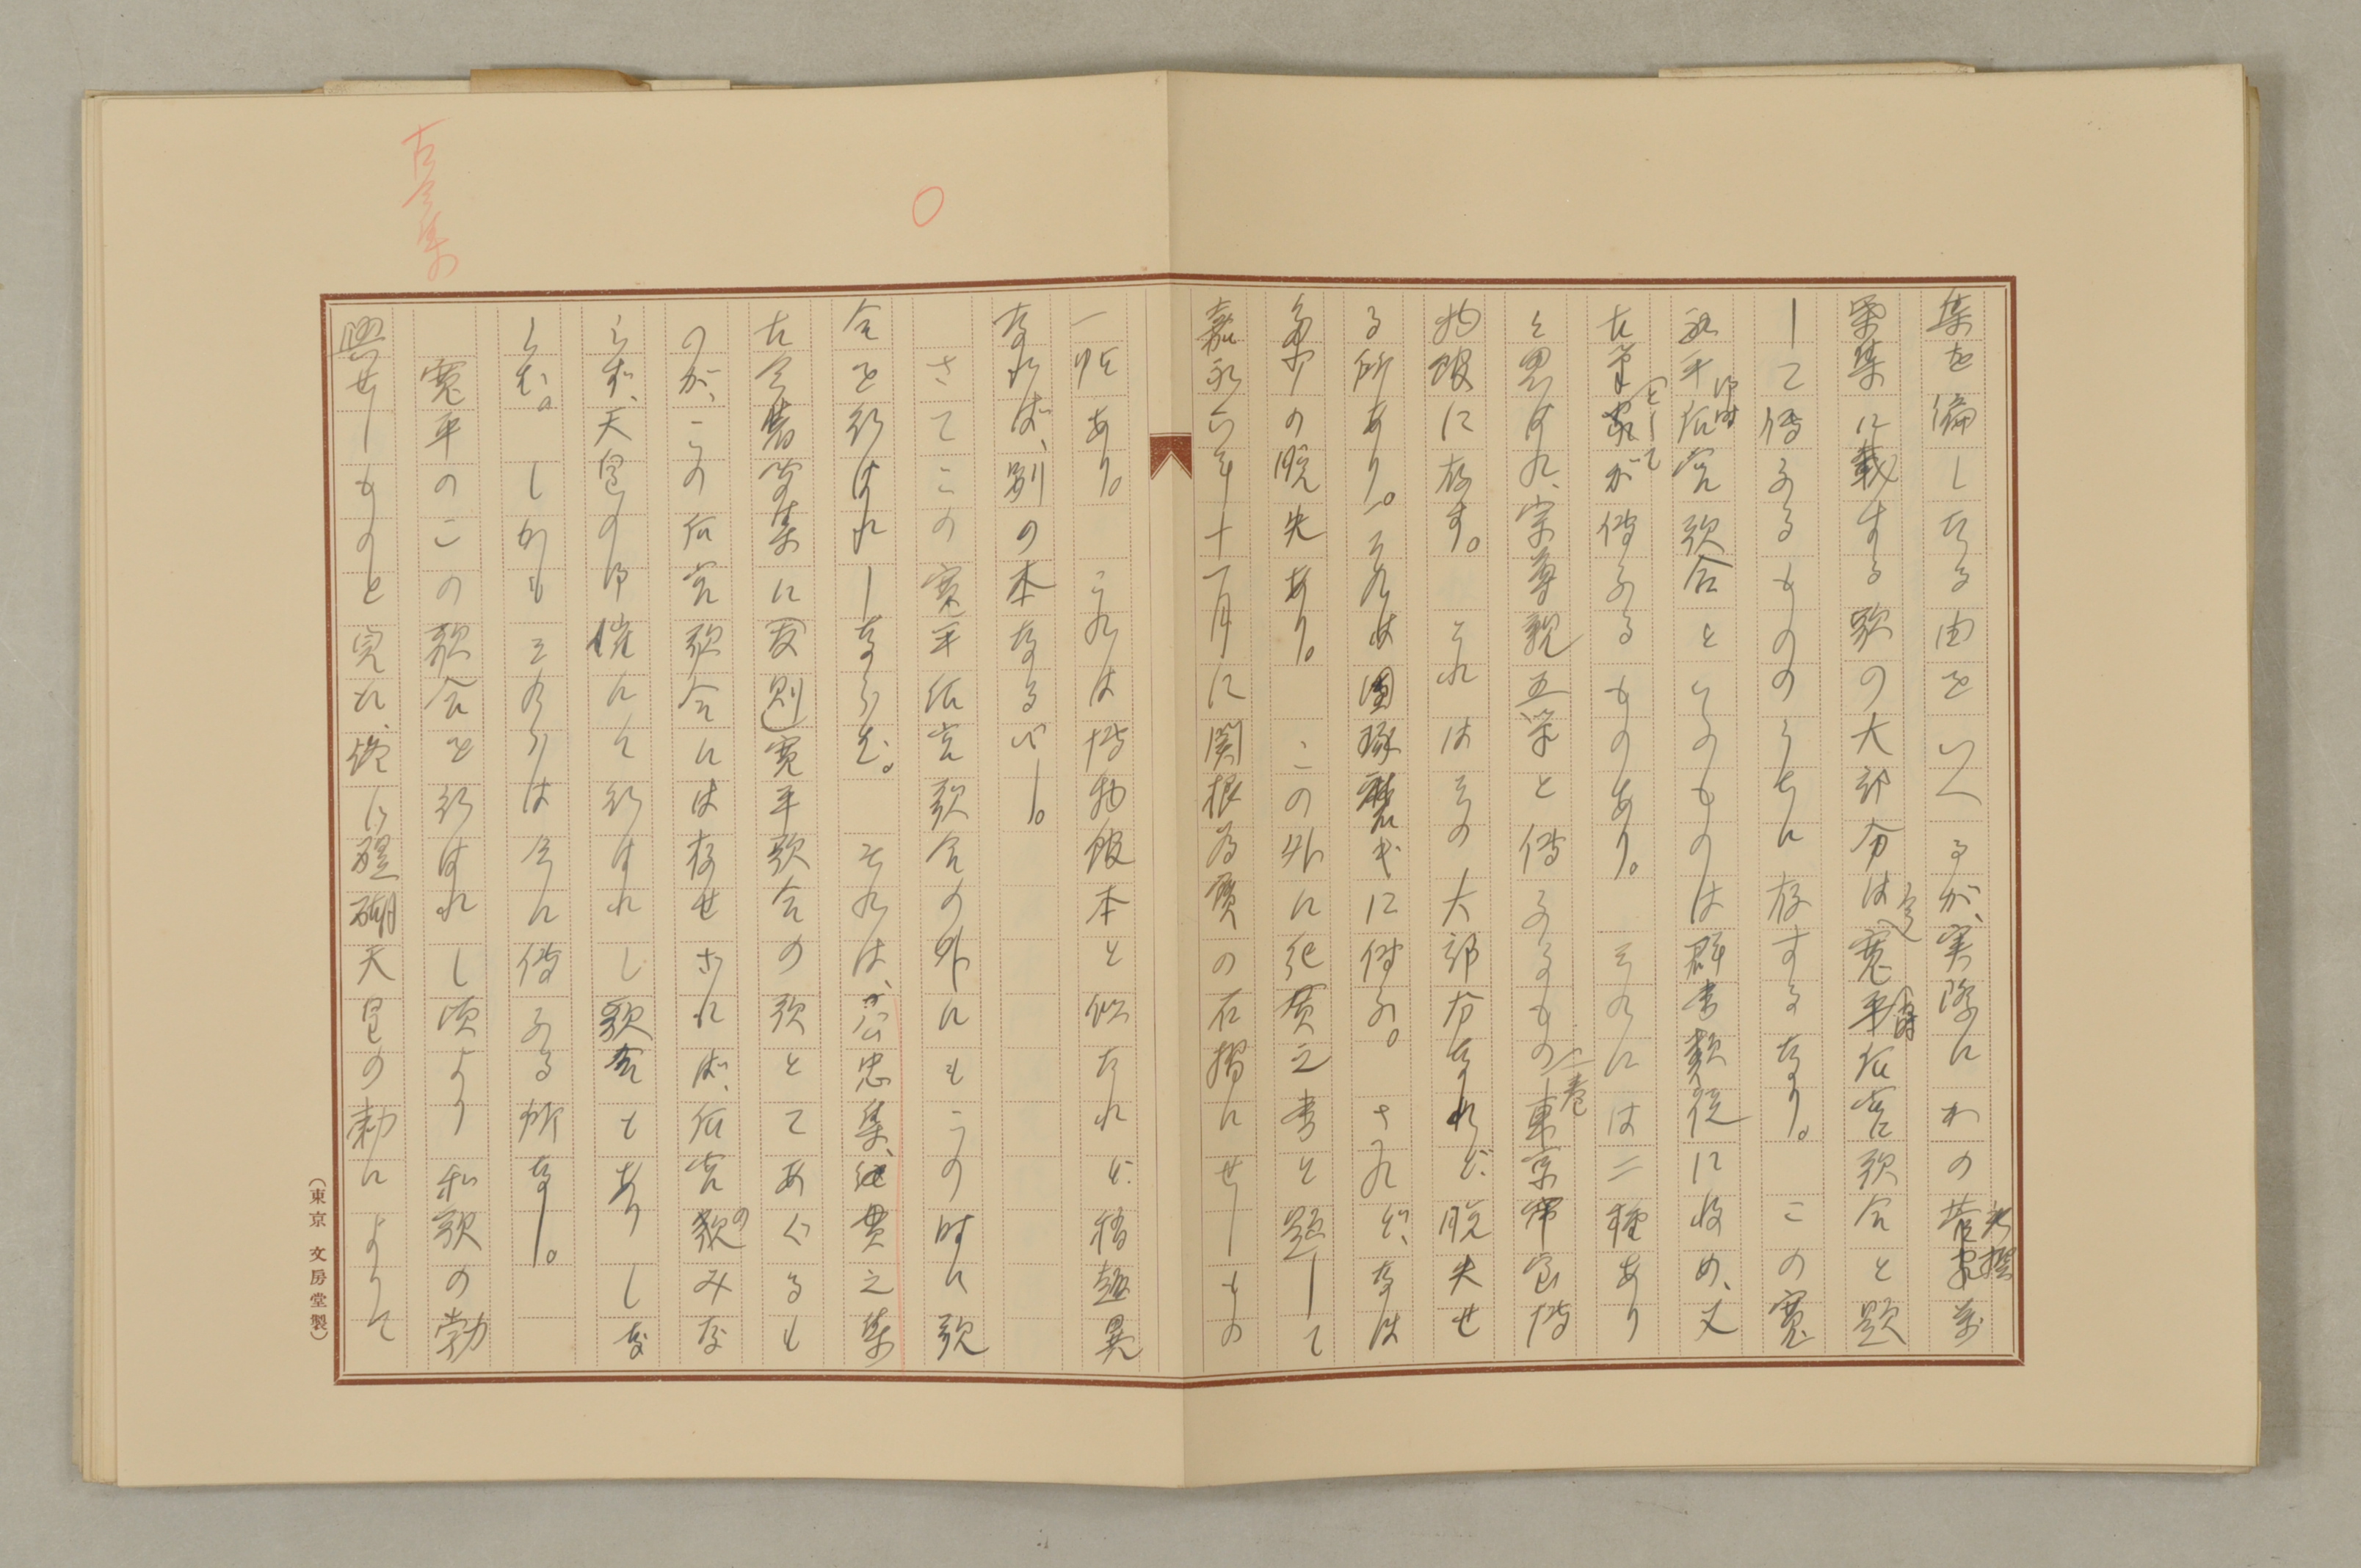 集を編したる由をいへるが、実際にわの菅家萬
新撰
葉集に載する歌の大部分は寛平后宮歌合と題
御時
して傳ふるもののうちに存するなり。この寛
平后宮歌合といふものは群書類従に收め、又
御時
古筆家が傳ふるものあり。それには二種あり
として
と思はれ、宗尊親王筆と傳ふるもの東京帝室博
一巻
物館に存す。それはその大部分なれど脱失せ
る所あり。それは田中氏に傳ふ。されど、なほ
多少の脱失あり。この外に紀貫之書と題して
嘉永六年十一月に関根為寶の石摺にせしもの
一帖あり。これは博物館本と似たれど稍趣異
なれば、別の本なるべし。
さてこの寛平后宮歌合の外にもこの時に歌
合を行はれしならむ。それは、公忠集、紀貫之集
古今集等に友則寛平歌合の歌とてあぐるも
のが、この后宮歌合には存せざれば、后宮の歌みな
らず、天皇の御催にて行はれし歌合もありしな
らむ。しかもそれらは今に傳ふる所なし。
寛平のこの歌合を行はれし頃より和歌の勃
興せしものと見え、終に醍醐天皇の勅によりて
古今集の
（東京 文房堂製）